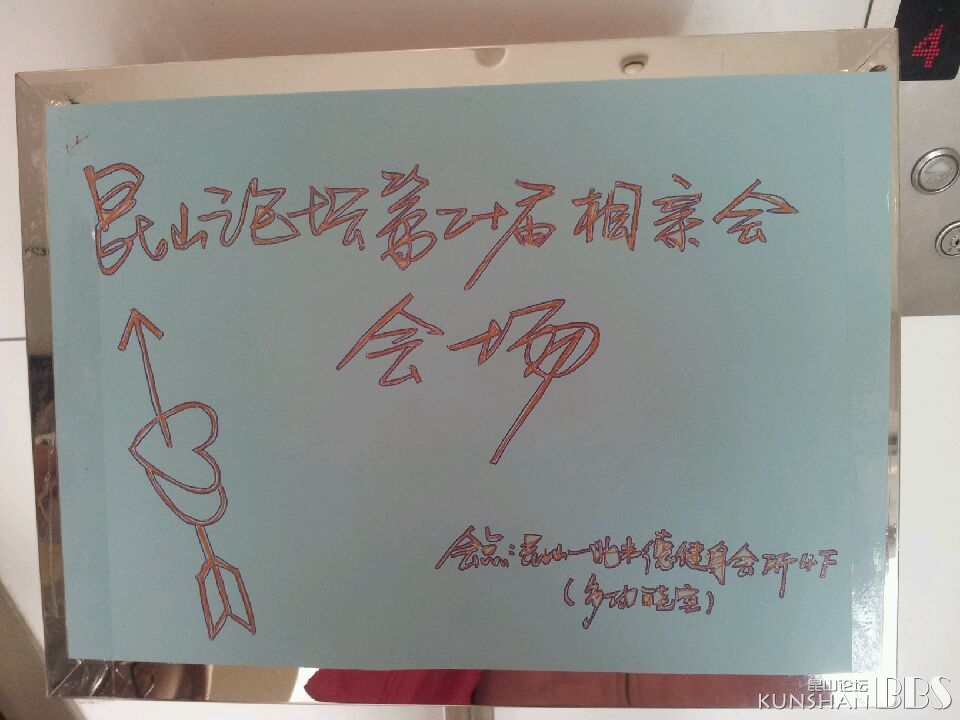 4
昆山论坛第二十届相亲会
会场
会点:昆山一兆韦德健身会所4F
(多功能室)
昆山论坛
KUNSHAN BBS